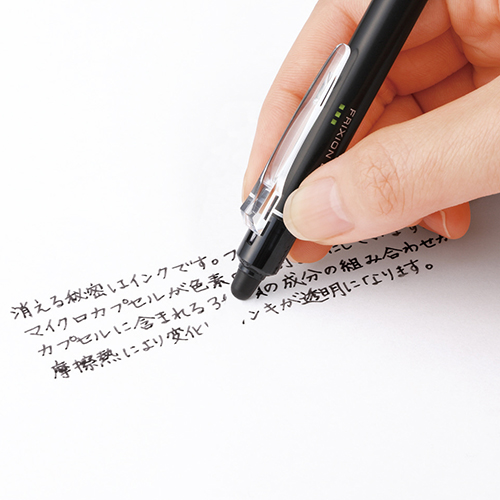 FRIXION
消える秘密はインクです。フ にしています
マイクロカプセルが色素 の成分の組み合わせが
カプセルに含まれる3 ンキが透明になります。
摩擦熱により変化